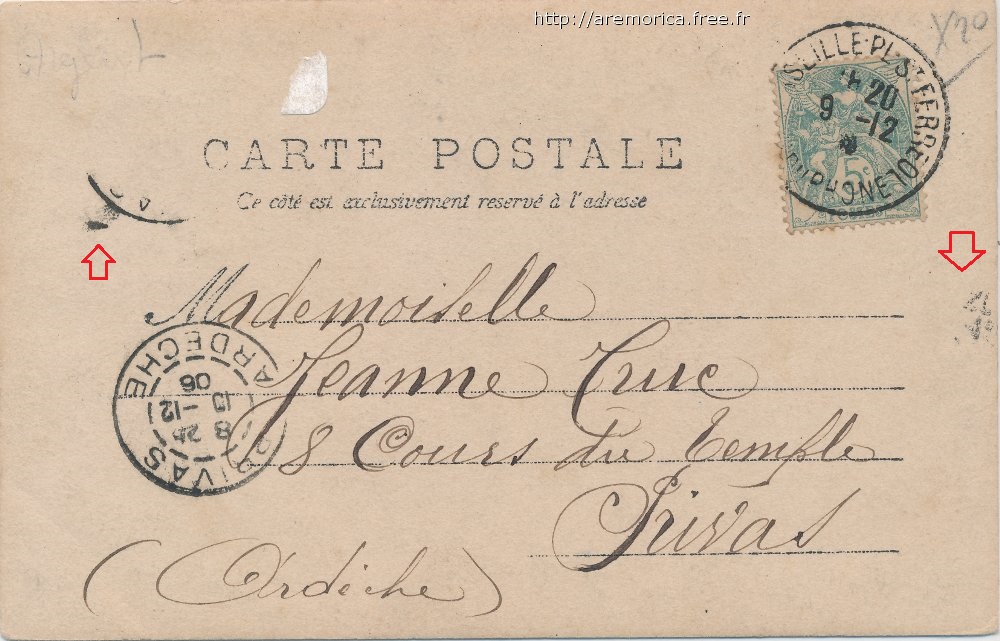 http://aremorica.free.fr
X20
SEILLE-PL. ST FERREOL
20
9 -12
5c
CARTE POSTALE
Ce côté est exclusivement reservé à l'adresse
Mademoiselle
Jeanne Truc
8 Cours du Temple
Privas
(Ardèche)
PRIVAS
ARDECHE
8
-12
06